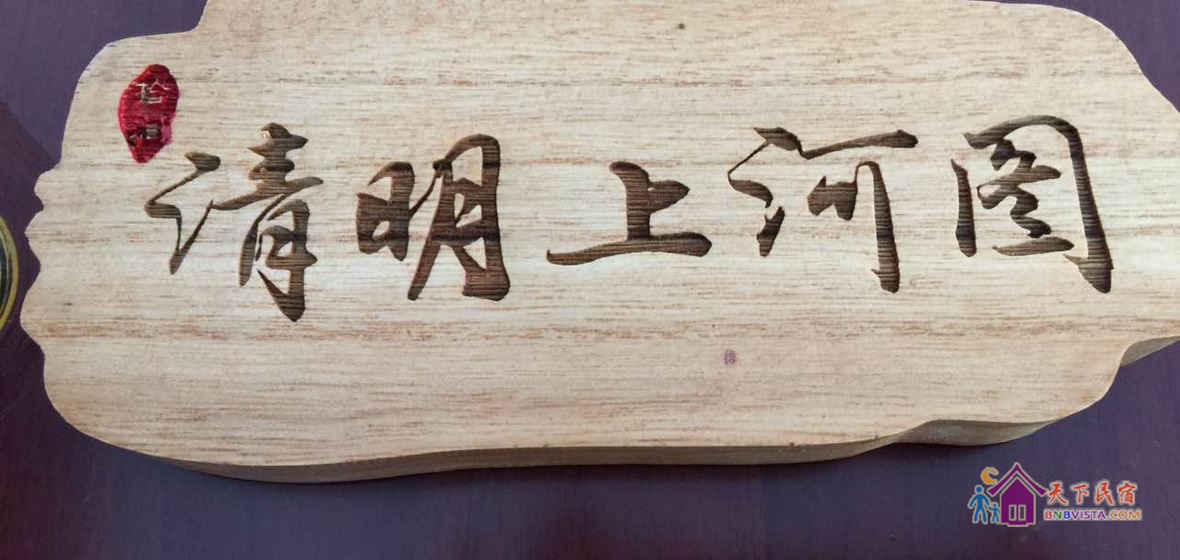 清明上河图
天下民宿
BNBVISTA.COM